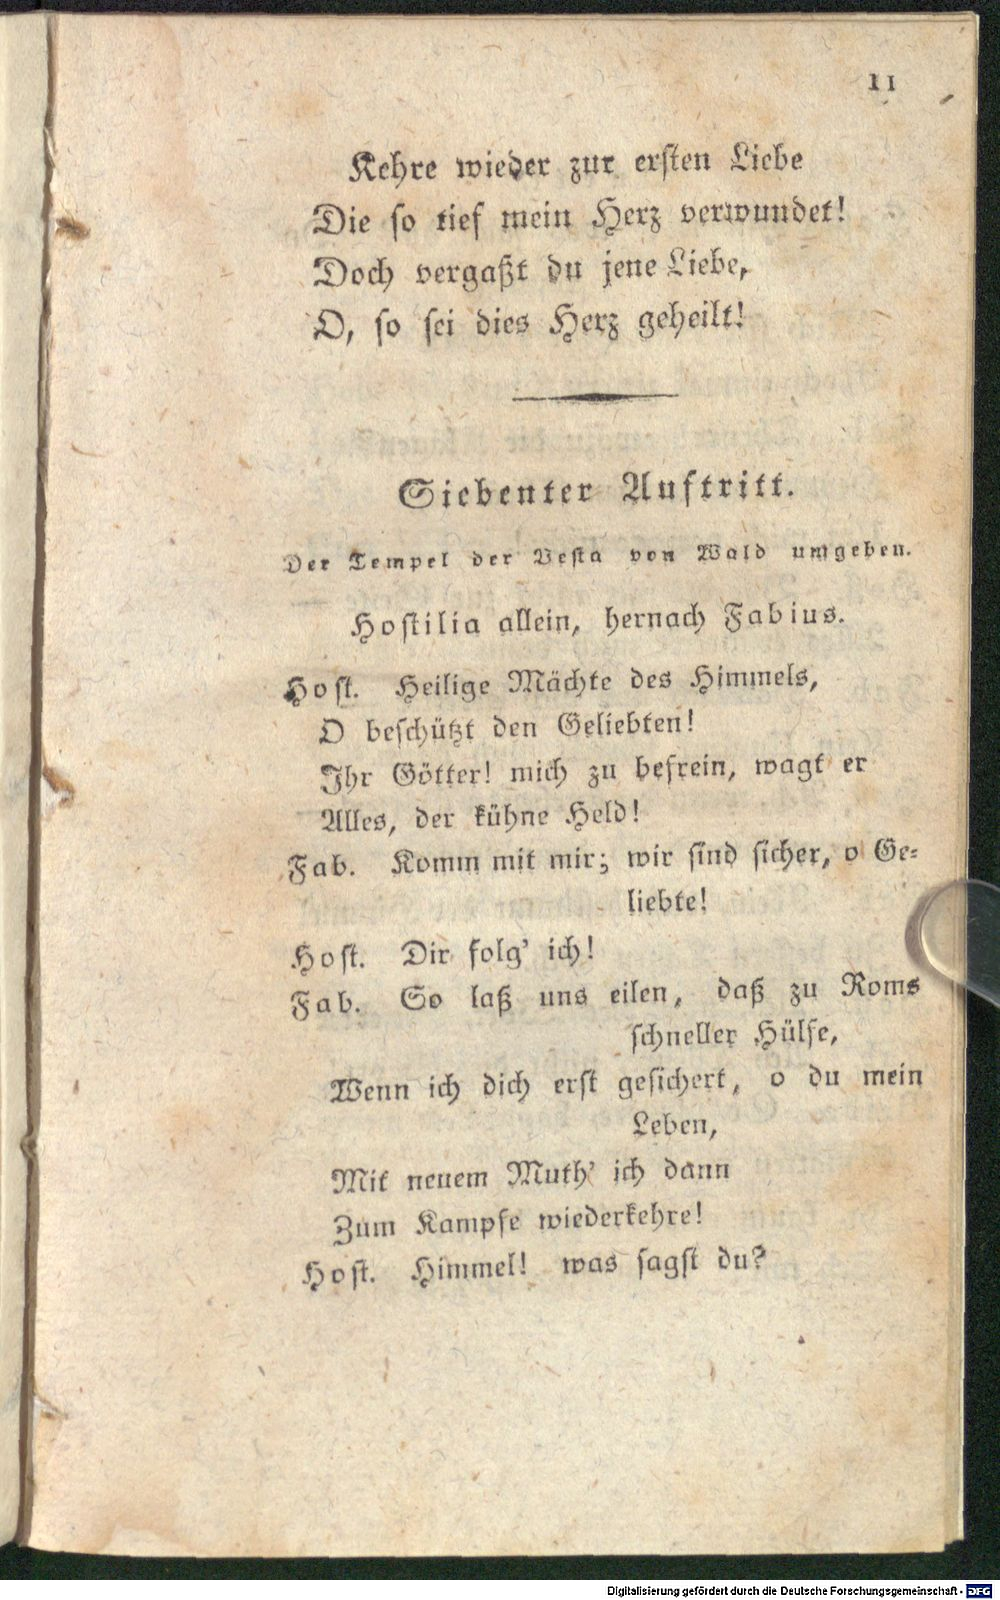 11
Kehre wieder zur ersten Liebe
Die so tief mein Herz verwundet!
Doch vergaßt du jene Liebe,
O, so sei dies Herz geheilt!
Siebenter Auftritt.
Der Tempel der Vesta von Wald umgeben.
Hostilia allein, hernach Fabius.
Host. Heilige Mächte des Himmels,
O beschützt den Geliebten!
Ihr Götter! mich zu befrein, wagt er
Alles, der kühne Held!
Fab. Komm mit mir; wir sind sicher, o Ge-
liebte!
Host. Dir folg' ich!
Fab. So laß uns eilen, daß zu Roms
schneller Hülfe,
Wenn ich dich erst gesichert, o du mein
Leben,
Mit neuem Muth' ich dann
Zum Kampfe wiederkehre!
Host. Himmel! was sagst du?
Digitalisierung gefördert durch die Deutsche Forschungsgemeinschaft - DFG